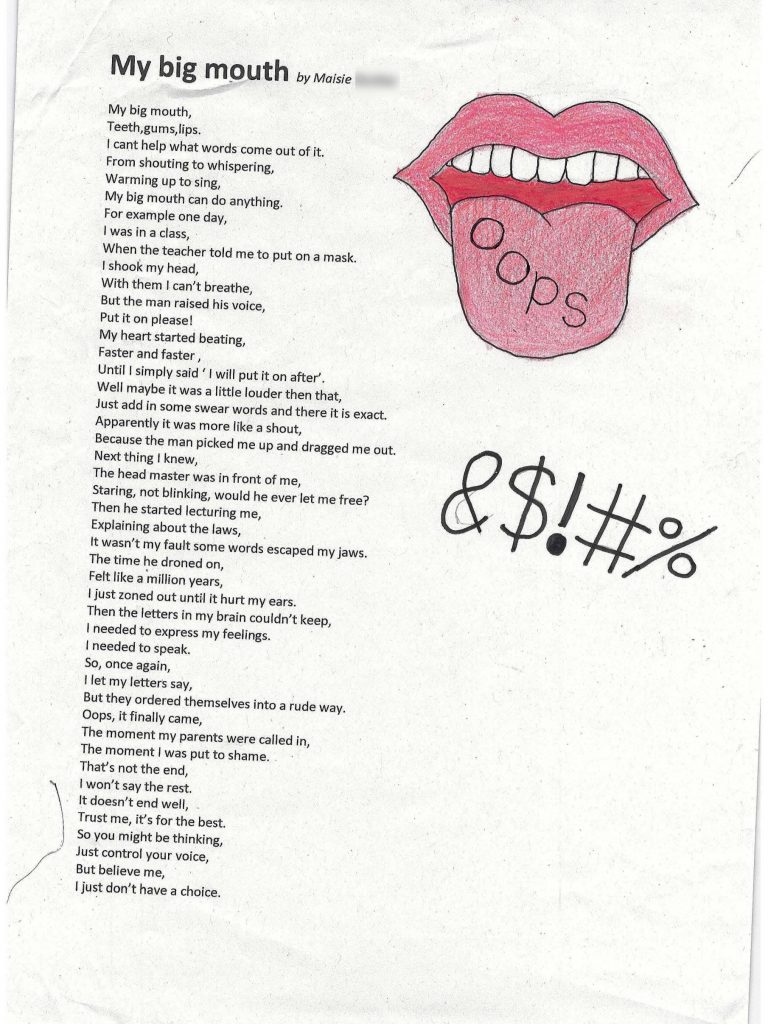 My big mouth by Maisie
My big mouth,
Teeth,gums,lips.
I cant help what words come out of it.
From shouting to whispering,
Warming up to sing,
My big mouth can do anything.
For example one day,
I was in a class,
When the teacher told me to put on a mask.
I shook my head,
With them I can't breathe,
But the man raised his voice,
Put it on please!
My heart started beating,
Faster and faster ,
Until I simply said ‘ I will put it on after’.
Well maybe it was a little louder then that,
Just add in some swear words and there it is exact.
Apparently it was more like a shout,
Because the man picked me up and dragged me out.
Next thing I knew,
The head master was in front of me,
Staring, not blinking, would he ever let me free?
Then he started lecturing me,
Explaining about the laws,
It wasn't my fault some words escaped my jaws.
The time he droned on,
Felt like a million years,
I just zoned out until it hurt my ears.
Then the letters in my brain couldn't keep,
I needed to express my feelings.
I needed to speak.
So, once again,
I let my letters say,
But they ordered themselves into a rude way.
Oops, it finally came,
The moment my parents were called in,
The moment I was put to shame.
That's not the end,
I won't say the rest.
It doesn't end well,
Trust me, it's for the best.
So you might be thinking,
Just control your voice,
But believe me,
I just don't have a choice.
Oops
&$!#%